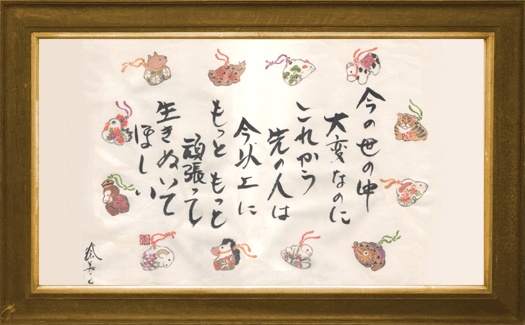 今の世の中
大変なのに
これから
先の人は
今以上に
もっともっと
頑張って
生きぬいて
ほしい